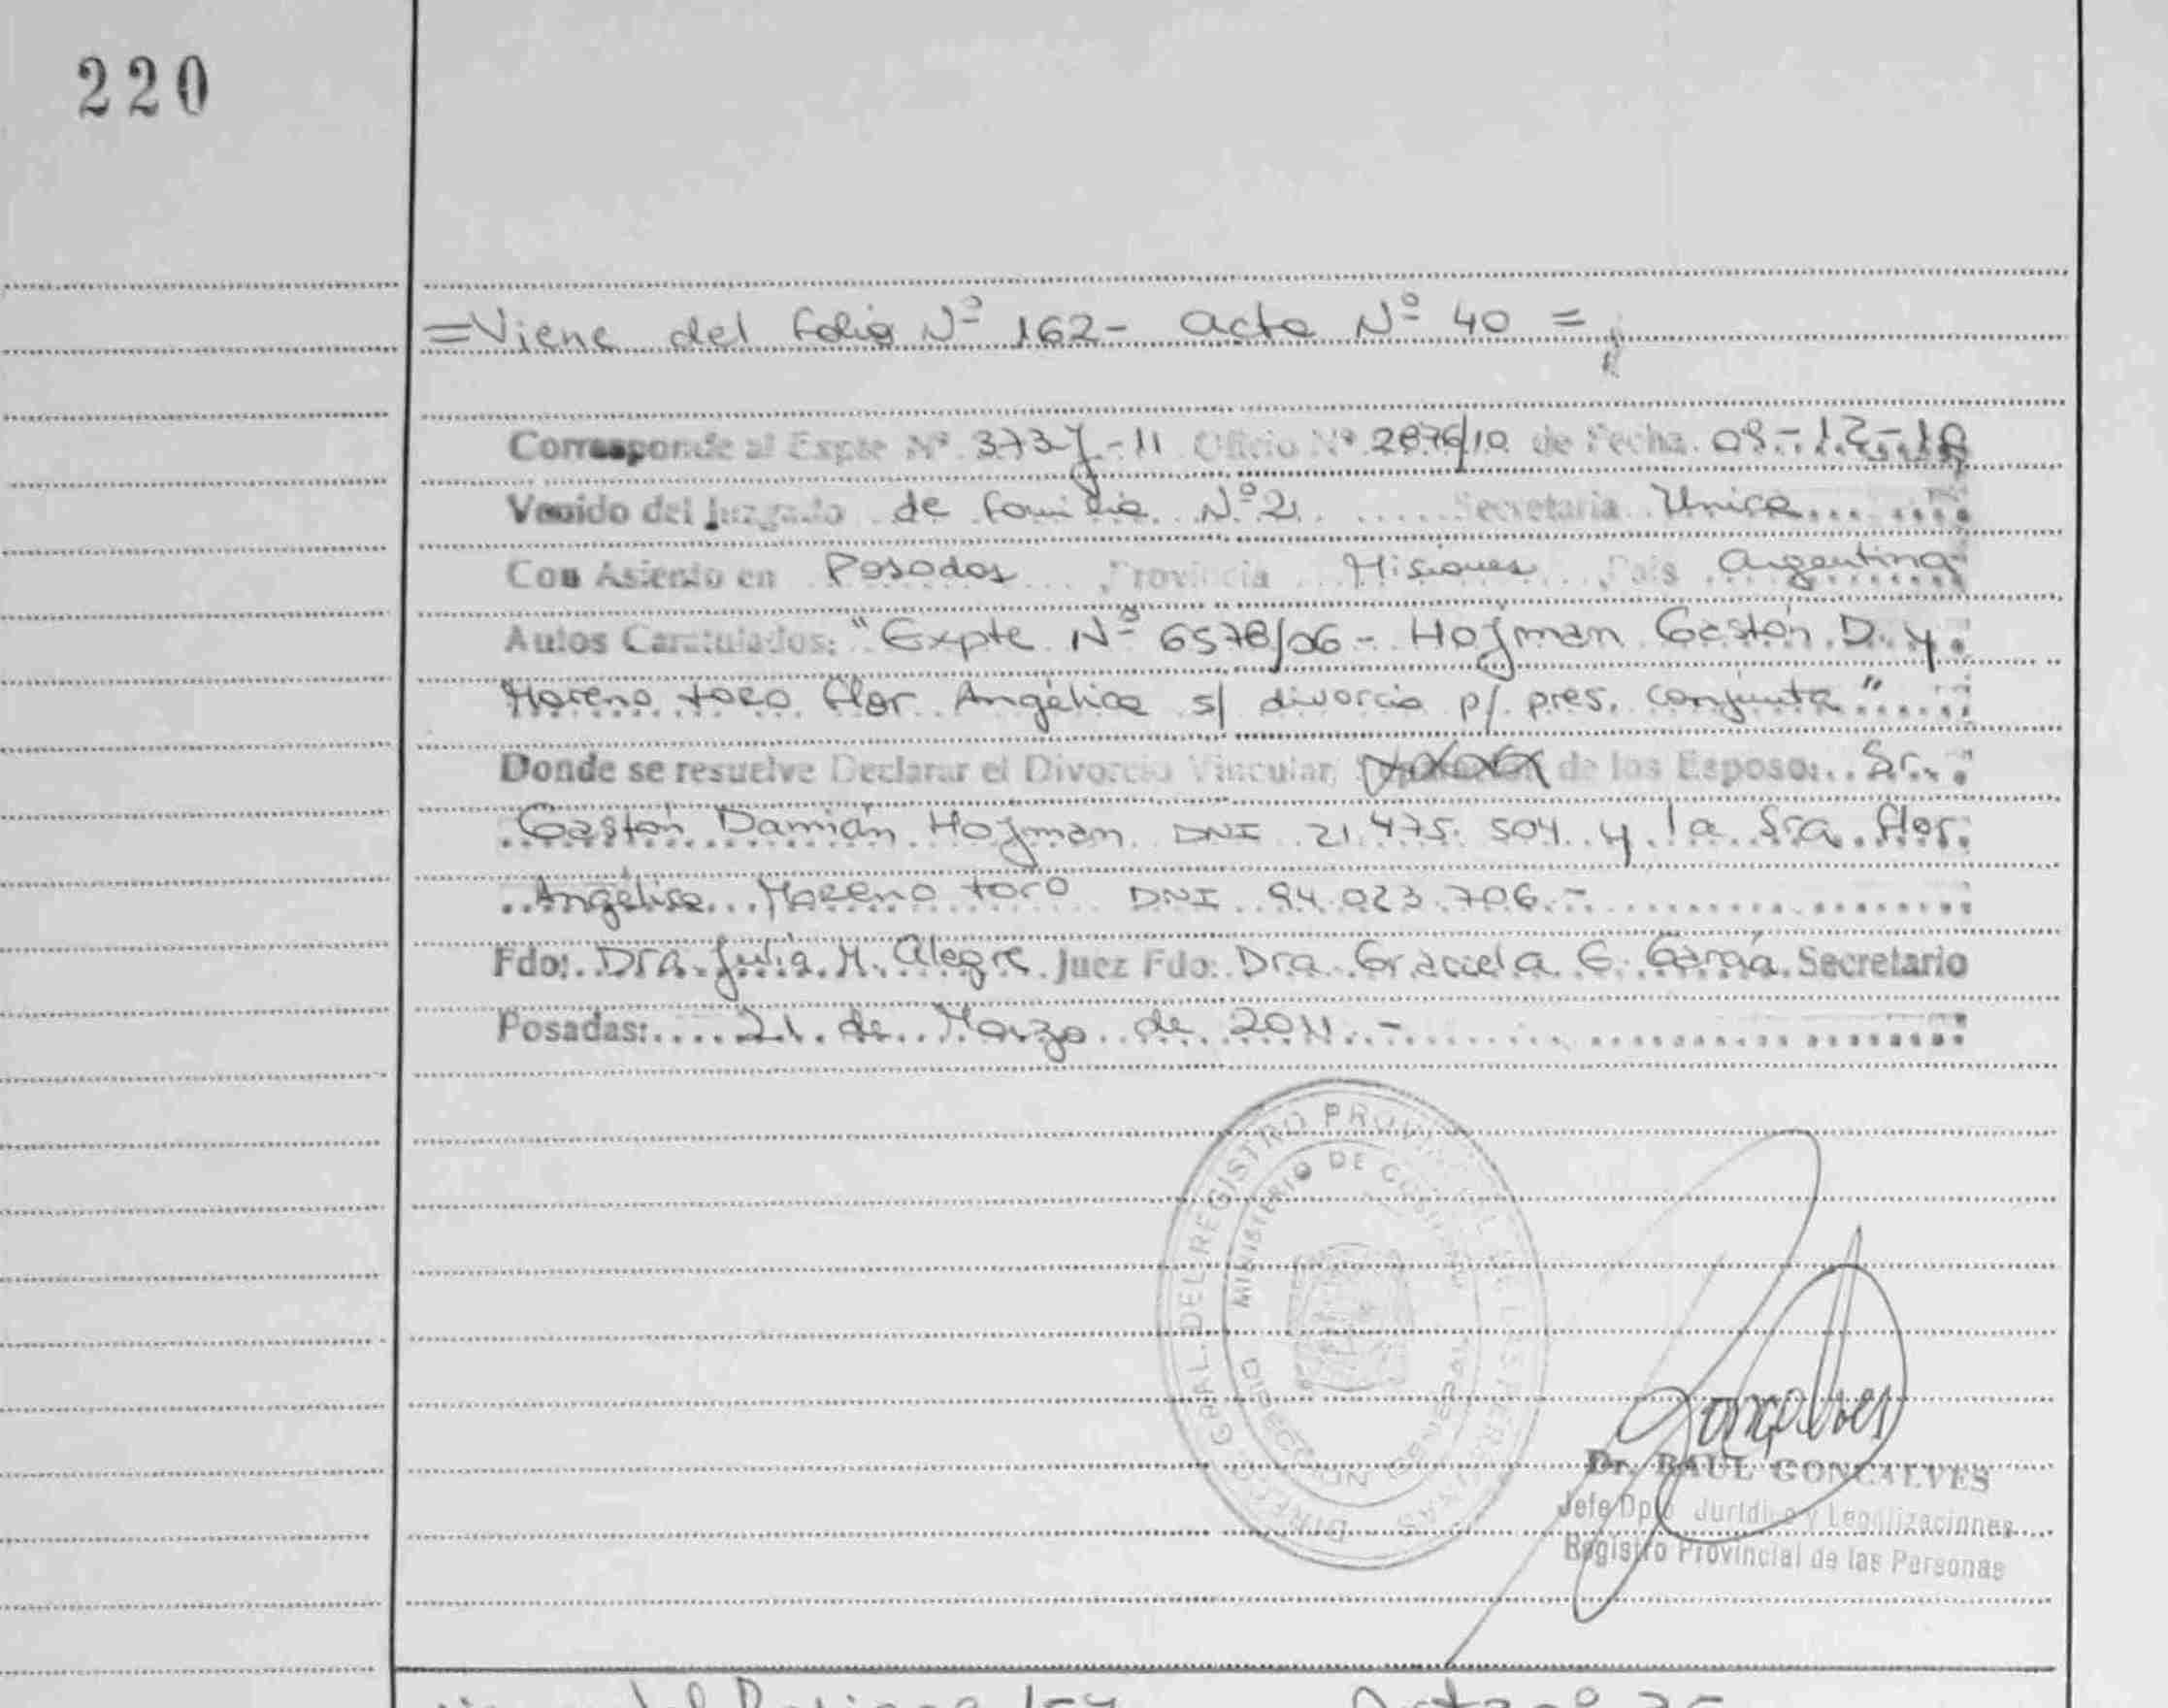 220
=Viene del folio Nº 162- acta Nº 40 =
Corresponde al Expte Nº 3737-11 Oficio Nº 2876/10 de Fecha 09-12-10
Venido del Juzgado de Familia Nº2 Secretaria Unica
Con Asiento en Posadas Provincia Misiones Pais Argentina
Autos Caratulados: "Expte Nº 6578/06- Hojman Gastón D. y
Moreno toro flor Angélica s/ divorcio p/ pres. conjunta"
Donde se resuelve Declarar el Divorcio Vincular, de los Esposo: Sr.
Gastón Damián Hojman DNI 21.475.504 y la Sra flor
Angélica Moreno toro DNI 94.023.706.-
Fdo: Dra. Julia M. Alegre Juez Fdo: Dra Graciela G. García Secretario
Posadas: 21 de Marzo de 2011.-
DIREC. GRAL. DEL REGISTRO PROVINCIAL DE LAS PERSONAS
MINISTERIO DE GOBIERNO
Goncalves
Dr. RAUL GONCALVES
Jefe Dpto Juridico y Legalizaciones
Registro Provincial de las Personas